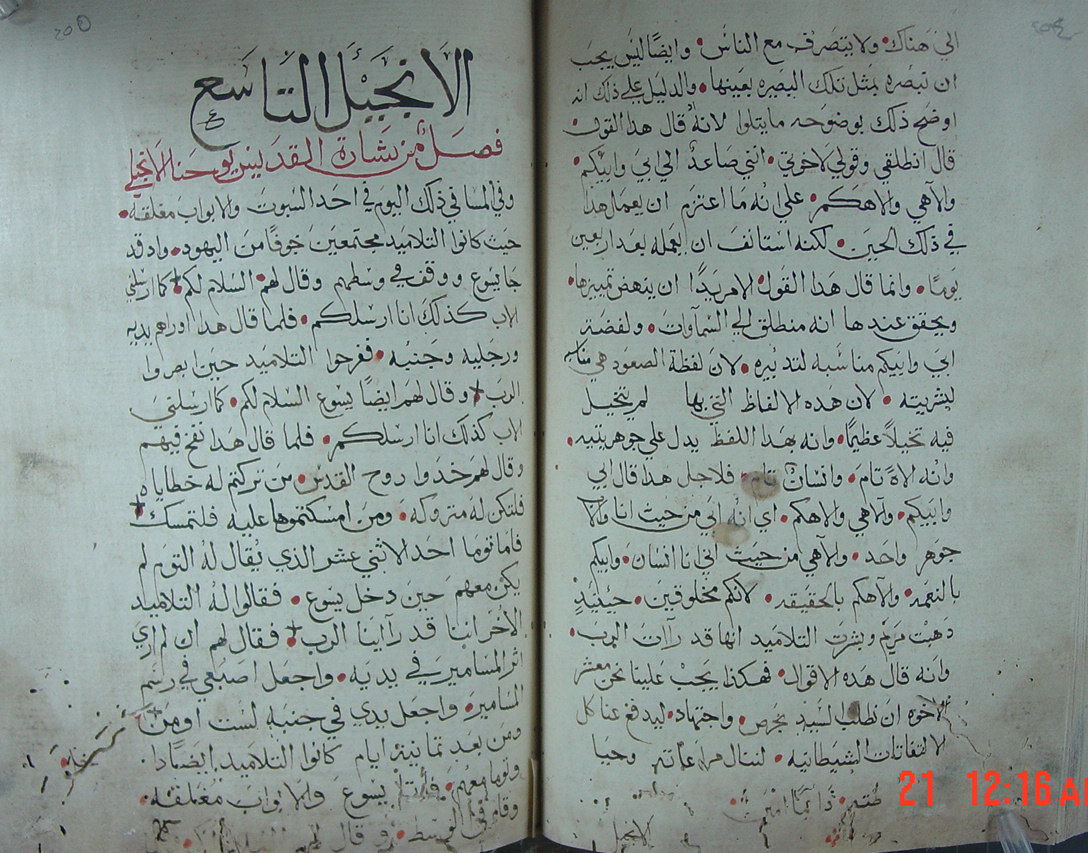 الي هناك • ولا يتصرف مع الناس • وايضًا ليس يجب
ان تبصره بمثل تلك البصيره بعينها • والدليل على ذلك انه
اوضح ذلك بوضوحه ما يتلوا لانه قال هدا القول •
قال انطلقي وقولي لاخوتي • انني صاعدٌ الي ابي وابيكم •
والاهي والاهكم • علي انه ما اعتزم ان يعمل هدا
في ذلك الحين • لكنه استانف ان يعمله بعد اربعين
يومًا • وانما قال هدا القول • الامريدًا ان ينهض تمييزها •
ويحقق عندها انه منطلق الي السماوات • ولفضة
ابي وابيكم مناسبه لتدبيره • لان لفظة الصعود هي مناسبه
لبشريته • لان هده الالفاظ التي بها لم تتخيل
فيه تخيلاً عظيمًا • وانه بهدا اللفظ يدل علي جوهريتيه •
وانه الاهٌ تام • وانسانٌ تام • فلاجل هدا قال ابي
وابيكم • والاهي والاهكم • اي انه ابي من حيث انا والاب
جوهر واحد • والاهي من حيث اني انا انسان • وابيكم
بالنعمه • والاهكم بالحقيقه • لانكم مخلوقين • حينيدٍ
دهبت مريم وبشرت التلاميد انها قد راات الرب •
وانه قال هده الاقوال • فهكدا يجب علينا نحن معشر
الاخوه ان نطلب السيد بحرص • واجتهاد • ليدفع عنا كل
الالتفاتات الشيطانيه • لننال مراعاته وحيا
طته • دايمًا امين •
الانجيل
الانجيل التاسع
فصل من بشارة القديس يوحنا الانجيلي
وفي المسا في ذلك اليوم في احد السبوت والابواب مغلقه •
حيث كانوا التلاميد مجتمعين خوفًا من اليهود • واد قد
جا يسوع ووقف في وسطهم وقال لهم • السلام لكم • كما ارسلني
الاب كدلك انا ارسلكم • فلما قال هدا اوراهم يديه
ورجليه وجنبه • ففرحوا التلاميد حين بصروا
الرب • وقال لهم ايضًا يسوع السلام لكم • كما ارسلني
الاب كدلك انا ارسلكم • فلما قال هدا نفخ فيهم
وقال لهم خدوا روح القدس • من تركتم له خطاياه
فلتكن له متروكه • ومن امسكتموها عليه فلتمسك
فاما توما احد الاثني عشر الذي يقال له التوم لم
يكن معهم حين دخل يسوع • فقالوا له التلاميد
الاخر اننا قد راينا الرب • فقال لهم ان لم اري
اثر المسامير في يديه • واجعل اصبعي في رسم
المسامير • واجعل يدي في جنبه لست اومن
ومن بعد ثمانية ايام كانوا التلاميد ايضًا دا
خله •
وتوما معهم • فأتا يسوع والابواب مغلقه •
وقام في الوسط • وقال لهم
21 12:16 AM